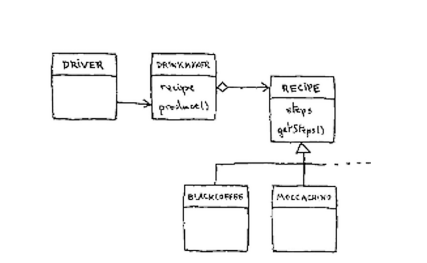 DRIVER
DRINKMAKER
recipe
produce()
RECIPE
steps
getSteps()
BLACKCOFFEE
MOCCACHINO